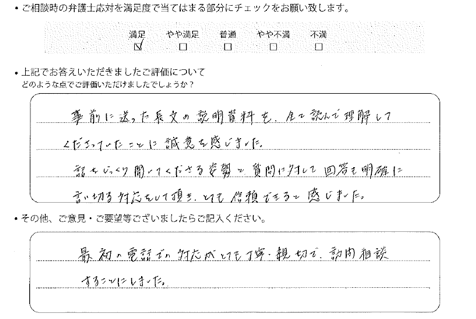 • ご相談時の弁護士応対を満足度で当てはまる部分にチェックをお願い致します。
満足 やや満足 普通 やや不満 不満
☑ □ □ □ □
• 上記でお答えいただきましたご評価について
どのような点でご評価いただけましたでしょうか?
事前に送った長文の説明資料を、全て読んで理解して
くださっていたことに誠意を感じました。
話をじっくり聞いてくださる姿勢と質問に対して回答を明確に
言い切る対応をして頂き、とても信頼できると感じました。
• その他、ご意見・ご要望等ございましたらご記入ください。
最初の電話での対応がとても丁寧・親切で、訪問相談
することにしました。